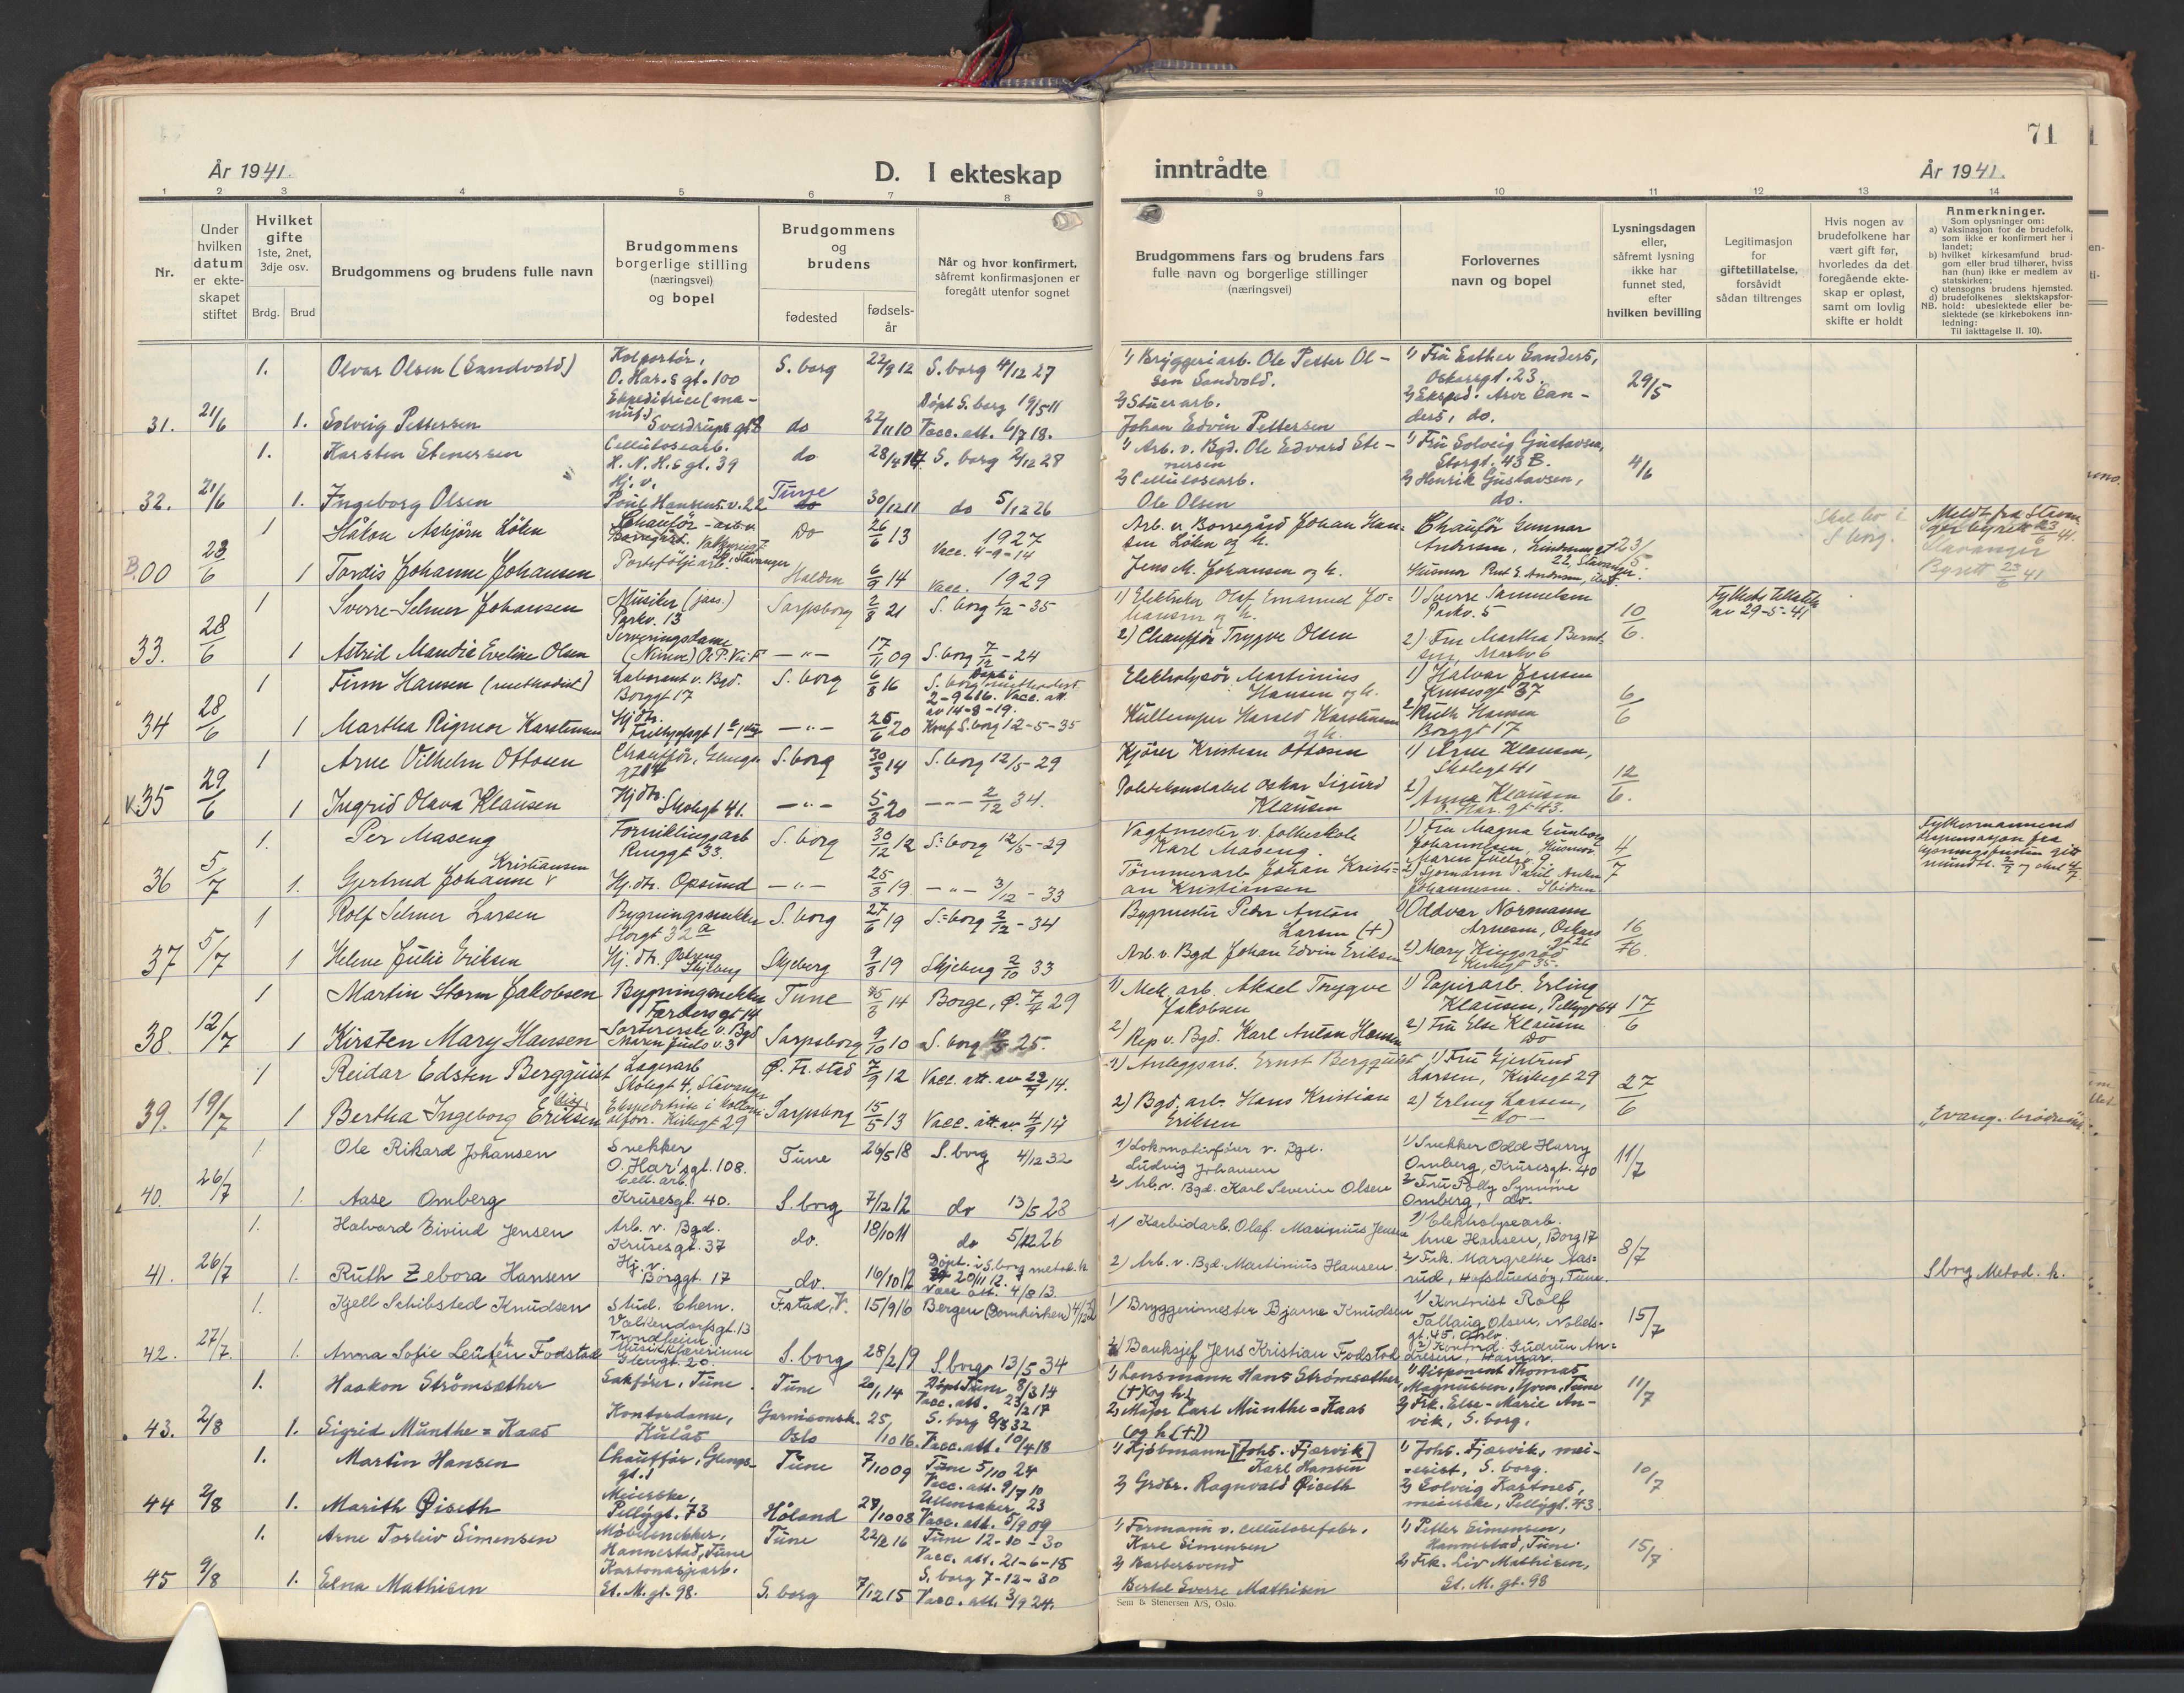 71
År 1941.
D. I ekteskap
inntrådte
År 1941.
1 2 3 4 5 6 7 8 9 10 11 12 13 14
Nr.
Under
hvilken
datum
er ekte-
skapet
stiftet
Hvilket
gifte
1ste, 2net,
3dje osv.
Brdg.
Brud
Brudgommens og brudens fulle navn
Brudgommens
borgerlige stilling
(næringsvei)
og bopel
Brudgommens
og
brudens
fødested
fødsels-
år
Når og hvor konfirmert,
såfremt konfirmasjonen er
foregått utenfor sognet
Brudgommens fars og brudens fars
fulle navn og borgerlige stillinger
(næringsvei)
Forlovernes
navn og bopel
Lysningsdagen
eller,
såfremt lysning
ikke har
funnet sted,
efter
hvilken bevilling
Legitimasjon
for
giftetillatelse,
forsåvidt
sådan tiltrenges
Hvis nogen av
brudefolkene har
vært gift før,
hvorledes da det
foregående ekte-
skap er opløst,
samt om lovlig
skifte er holdt
Anmerkninger.
Som oplysninger om:
a) Vaksinasjon for de brudefolk,
som ikke er konfirmert her i
landet;
b) hvilket kirkesamfund brud-
gom eller brud tilhører, hviss
han (hun) ikke er medlem av
statskirken;
c) utensogns brudens hjemsted.
d) brudefolkenes slektskapsfor-
NB. hold: ubeslektede eller be-
slektede (se kirkebokens inn-
ledning:
Til iakttagelse II. 10).
1. Olvar Olsen (Sandvold) Kolportör, O. Har.s gt. 100 S. borg 22/9 12 S. borg 4/12 27
1) Bryggeriarb. Ole Petter Ol-
sen Sandvold. 1) Frü Esther Sanders, Oskarsgt. 23. 29/5
31. 21/6 1. Solveig Pettersen Ekspeditrice (ma-
nüf.) Sverdrüps gt 2 do 22/11 10 Döpt S. borg 19/5 11 Vacc. att. 6/7 18.
2) Stüerarb. Johan Edvin Pettersen 2) Eksped. Arve San-
ders, do.
1. Karsten Stenersen Cellülosearb. H. N. H.s gt. 39 do 28/4 14 S. borg 2/12 28
1) Arb. v. Bgd. Ole Edvard Ste-
nersen 1) Frü Solveig Güstavsen, Storgt. 43 B. 4/6
32. 21/6 1. Ingeborg Olsen Hj. v. Poül Hansens v. 22 Tüne 30/12 11 do 5/12 26
2) Cellülosearb. Ole Olsen 2) Henrik Güstavsen, do.
1 Håkon Asbjörn Löken Chauför Borregård. Do 26/6 13 1927 Vacc. 4-9-14
Arb. v. Borregård Johan Han-
sen Löken og h. Chauför Gunnar Andersen, 22, Stavanger. 23/5 Skal bo i S. borg.
B.00 23/6 1 Tordis Johanne Johansen Porteföljearb. Stavanger Halden 6/9 14 Vacc. 1929
Jens M. Johansen og h. Stavanger Byrett 23/6 41
1 Sverre Selmer Johansen Musiker (jass.) Parkv. 13 Sarpsborg 2/8 21 S. borg 1/12 - 35
1) Elektriker Olaf Emanuel Jo-
hansen og h. 1) Sverre Samuelsen Parkv. 5 10/6. Fylkets tillatelse av 29-5-41
33. 28/6 1 Astrid Maudia Eveline Olsen Serveringsdame —"— 17/11 09 S. borg 7/12 - 24
2) Chauffør Trygve Olsen 2) Fru Martha Bernt-
sen, Parkv 6
1 Finn Hansen (methodist) Laborant v. Bgd. Borggt 17 S. borg 6/8 16 Døpt i S. borg methodist 2-9 1916. Vacc. att. av 14-8-19.
Elektrolysör Martinius Hansen og h. 1) Halvar Jensen Krusesgt 37 6/6
34 28/6 1 Martha Rigmor Karstensen Hj.dtr. —"— 25/6 20 Konf S. borg 12-5-35
Küllemper Harald Karstensen og h. 2) Ruth Hansen Borggt 17
1 Arne Vilhelm Ottosen Chauffør, Glengs gt 14 S. borg 30/3 14 S. borg 12/5 - 29
Kjører Kristian Ottosen 1) Arne Klausen, Skolegt 41 12/6.
v.35 29/6 1 Ingrid Olava Klausen Hjdtr. Skolegt 41. —"— 5/3 20 —"— 2/12 34.
Politikonstabel Oskar Sigurd Klausen 2) Anna Klausen O. Har. gt 43.
1. Per Maseng Forniklingsarb Ringgt 33. S. borg 30/12 12 S. borg 12/5 - 29
Vagtmester v. folkeskole Karl Maseng. 1) Fru Magna Gunborg Johannesen, Husmor. Maren Juels v. 9. 4/7
Fylkesmannens dispensasjon fra lysningsfristen gitt mundtl. 2/7 og skrl 4/7
36 5/7 1. Gertrud Johanne Kristiansen Hj. dtr. Opsund —"— 25/3 19 —"— 3/12 - 33
Tømmerarb Johan Kristi-
an Kristiansen 2) Sjømann Paul Anton Johannesen. Ibidem
1 Rolf Selmer Larsen Bygningssnekker Storgt 32a S. borg 27/6 19 S. borg 2/12 - 34
Bygmester Peder Anton Larsen (+) 1) Oddvar Normann Arnesen, Oskars gt 26 16/6.
37 5/7 1 Helene Julie Eriksen Hj. dtr. Skjeberg Skjeberg 9/3 19 Skjeberg 2/10 33
Arb. v. Bgd Johan Edvin Eriksen 2) Mary Kingsrød Kirkegt 35.
1 Martin Storm Jakobsen Bygningsnekker Færders gt 14 Tune 25/3 14 Borge, Ø. 7/4 29
1) Mek. arb. Aksel Trygve Jakobsen 1) Papirarb. Erling Klausen, Pellygt 64 17/6
38. 12/7 1 Kirsten Mary Hansen Sortererske v. Bgd Maren Juels v. 3 Sarpsborg 9/10 10 S. borg 25.
2) Rep v. Bgd. Karl Anton Hansen 2) Frü Else Klausen Do
1 Reidar Edsten Bergquist Lagerarb Skolegt 4, Stavanger Ø. Fr. stad 7/9 12 Vacc. att. av 29/9 14.
1) Anleggsarb. Ernst Bergquist 1) Fru Gjertrud Larsen, Kirkegt 29 27/6
39. 19/7 1 Bertha Ingeborg Eriksen Kirkegt 29 Sarpsborg 15/5 13 Vacc. att. av 4/9 14
2) Bgd. arb. Hans Kristian Eriksen 2) Erling Larsen, — do —
1. Ole Rikard Johansen Snekker O. Har's gt. 108. Tüne 26/5 18 S. borg 4/12 32
1) Lokomotivfører v. Bgd. Lüdvig Johansen 1) Snekker Odd Harry Omberg, Krüsesgt. 40 11/7
40. 26/7 1. Aase Omberg Cell. arb. Krüsesgt. 40. S. borg 7/12 12 do 13/5 28
2) Arb. v. Bgd. Karl Severin Olsen 2) Frü Polly Synnöve Omberg, do.
1. Halvard Eivind Jensen Arb. v. Bgd. Krüsesgt. 37 do. 18/10 11 do 5/12 26
1) Karbidarb. Olaf Marinius Jensen 1) Elektrolysearb. Arne Hansen, Borg 17 8/7
41. 26/7 1. Rüth Zebora Hansen Hj. v. Borggt. 17 do. 16/10 12 Döpt i S. borg metod. k 20/11 12. Vacc att. 4/8 13.
2) Arb. v. Bgd. Martinius Hansen. 2) Frk. Margrethe Aas-
rüd, Hafslundsøy, Tüne. S borg Metod. k.
1. Kjell Schibsted Knüdsen Stüd. Chem. Valkendorfsgt. 13 Trondheim. F.stad, V. 15/9 16 Bergen (Domkirken) 4/12 32
1) Bryggerimester Bjarne Knüdsen 1) Kontorist Rolf Tallaug Olsen, Nobels-
gt. 45. Oslo. 15/7
42. 27/7. 1. Anna Sofie Leuthen Fodstad Müsiklærerinne Glengt. 20. S. borg 28/2 19 S. borg 13/5 34
2) Banksjef Jens Kristian Fodstad 2) Kontord. Güdrün An-
dresen, Hamar.
1. Haakon Strömsæther Sakförer, Tüne. Tüne 20/1 14 Döpt Tüne 8/3 14 Vacc. att. 23/2 17
1) Lensmann Hans Strömsæther (+) (og h) 1) Disponent Thomas Magnüssen, Yven, Tüne 11/7
43. 2/8 1. Sigrid Münthe = Kaas Kontordame, Külås Garnisonsk. Oslo 25/10 16. S. borg 8/5 32 Vacc. att. 10/4 18
2) Major Carl Münthe = Kaas (og h (+)) 2) Frk. Else-Marie An-
vik, S. borg.
1. Martin Hansen Chauffør, Glengs-
gt. 1 Tüne 7/10 09 Tüne 5/10 24 Vacc. att. 9/7 10
1) Kjöbmann [Johs. Fjærvik] Karl Hansen 1) Johs. Fjærvik, mei-
erist, S. borg. 10/7
44 2/8 1. Marith Øiseth Meierske, Pellygt. 73 Höland 28/10 08 Ullensaker 23 Vacc. att. 5/9 09
2) Grdbr. Ragnvald Øiseth 2) Solveig Kartnes, meierske, Pellygt. 43.
1. Arne Torleiv Simensen Möbelsnekker, Hannestad, Tüne Tüne 22/2 16 Tüne 12-10-30 Vacc. att. 21-6-18
1) Formann v. cellulosefabr. Karl Simensen 1) Petter Simensen, Hannestad, Tüne. 15/7
45 9/8 1. Edna Mathisen Kartonasjearb. St. M. gt. 98. S. borg 7/12 15 S. borg 7-12-30 Vacc. att. 3/9 24.
2) Barbersvend Bertel Sverre Mathisen 2) Frk. Liv Mathisen, St. M. gt. 98
Sem & Stenersen A/S, Oslo.